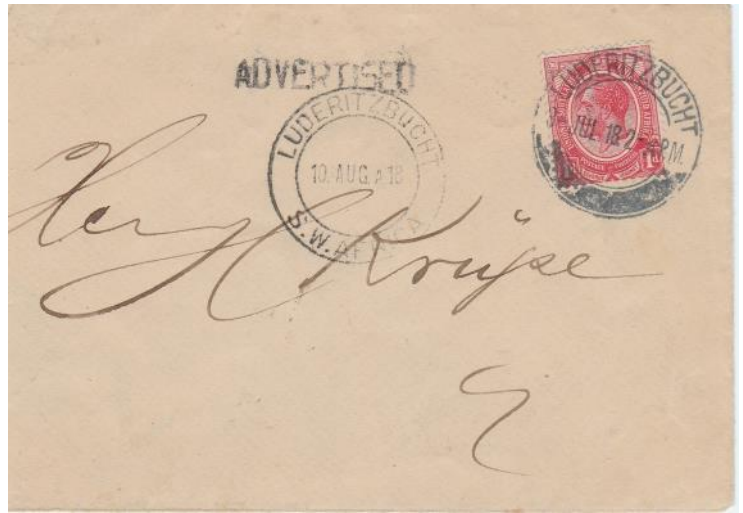 ADVERTISED
LUDERITZBUCHT
10. AUG. A 18
S.W. AFRICA
LUDERITZBUCHT
JUL 18 2- PM.
1d
Herr C Krüpe